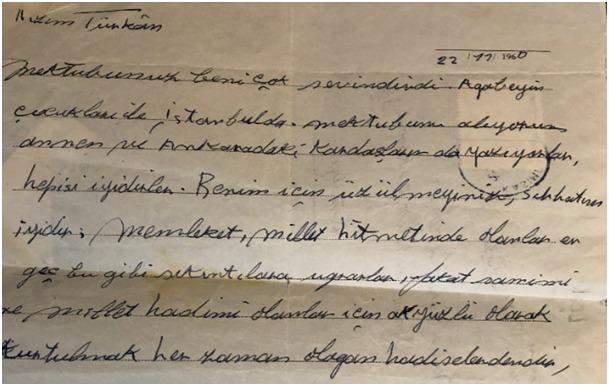 Kızım Türkân
22/11/1960
Mektubunuz beni çok sevindirdi. Ağabeyin
çocukları ile İstanbulda. mektubunu alıyorum
annen ve Ankaradaki Kardaşların da yazıyorlar,
hepisi iyidirler. Benim için üzülmeyiniz, sıhhatım
iyidir; memleket, millet hizmetinde olanlar er
geç bu gibi sıkıntılara uğrarlar, fakat samimi
ve millet hadimi olanlar için akyüzlü olarak
kurtulmak her zaman olağan hadiselerdendir,